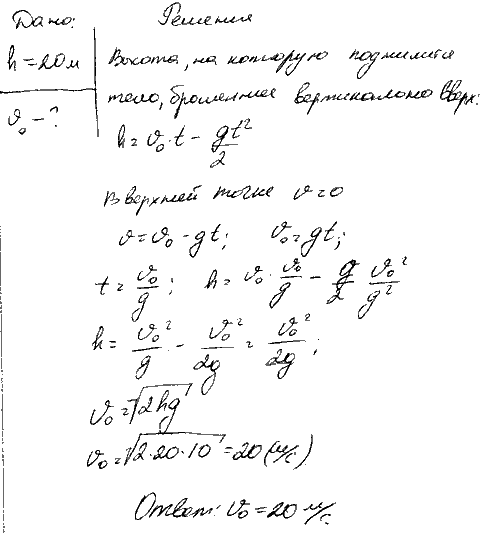 Дано: Решение
h = 20 м
Высота, на которую поднимится
тело, брошенное вертикально вверх:
v₀ - ?
h = v₀·t - gt²/2
В верхней точке v = 0
v = v₀ - gt; v₀ = gt;
t = v₀/g; h = v₀·v₀/g - g/2 v₀²/g²
h = v₀²/g - v₀²/2g = v₀²/2g;
v₀ = √2hg
v₀ = √2·20·10 = 20 (м/с)
Ответ: v₀ = 20 м/с.